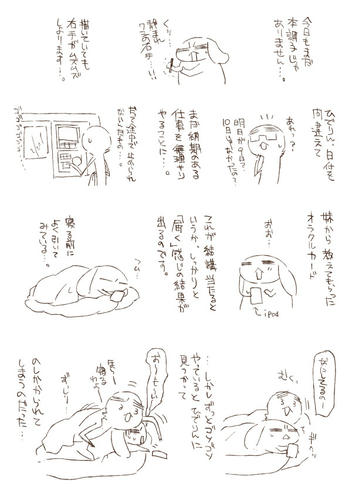 今日もまだ
本調子じゃ
ありません…。
くっ…
静まれ
ワシの右手…!!
描いていても
右手がムズムズ
しよります…。
ひでりん、日付を
間違えて
あれっ?
明日が9日?
10日じゃなかった?
まだ納期のある
仕事を無理やり
やることに…。
妹から教えてもらった
オラクルカード
おお…
iPod
これが結構当たると
いうか、しっかりと
「届く」感じの結果が
出るのです。
寝る前に
よく引いて
みている…。
フム…
なにしとるの~
むくっ
…しかしずっとゴソゴソ
やっているとひでりんに
見つかって
お~も~い
ずしっ
のしかかられて
しまうのだった…